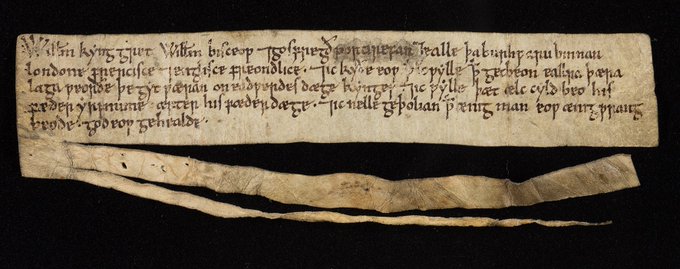 Willm kyng gret Willm bisceop ⁊ gosfregð portirefan ⁊ ealle þa burhwaru binnan
londone frencisce ⁊ englisce freondlice ⁊ ic kyðe eow þæt ic wylle þæt get beon eallra þæra
laga weorðe þe gyt wæran on eadwerdes dæge kynges ⁊ ic wylle þæt ælc cyld beo his
fæder yrfnume æfter his fæder dæge ⁊ ic nelle geþolian þæt ænig man eow ænig wrang
beode god eow gehealde